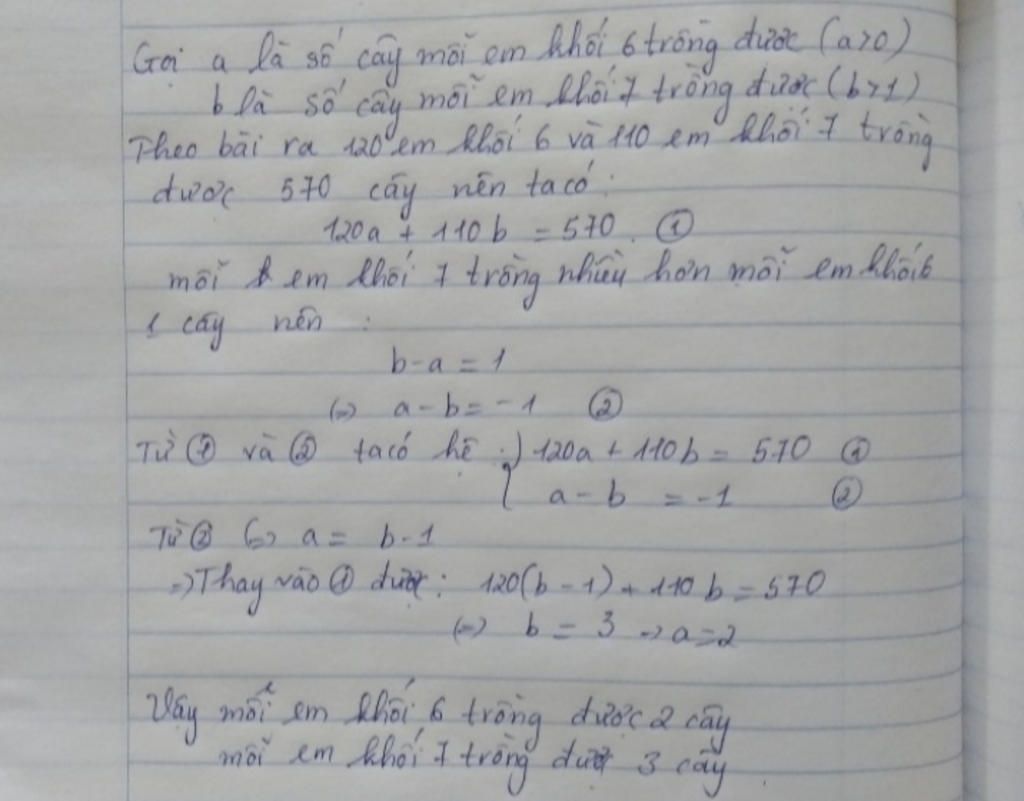 Gọi a là số cây mỗi em khối 6 trồng được (a>0)
b là số cây mỗi em khối 7 trồng được (b>1)
Theo bài ra 120 em khối 6 và 110 em khối 7 trồng
được 570 cây nên ta có:
120a + 110b = 570. ①
mỗi em khối 7 trồng nhiều hơn mỗi em khối 6
1 cây nên :
b - a = 1
(=) a - b = -1 ②
Từ ① và ② ta có hệ : { 120a + 110b = 570 ①
a - b = -1 ②
Từ ② (=) a = b - 1
=) Thay vào ① được: 120(b - 1) + 110b = 570
(=) b = 3 -> a = 2
Vậy mỗi em khối 6 trồng được 2 cây
mỗi em khối 7 trồng được 3 cây